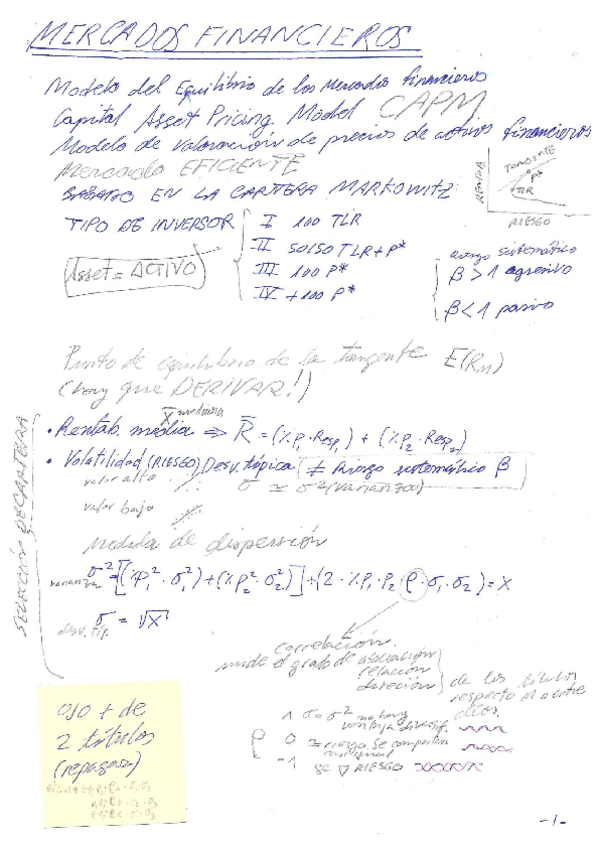 MERCADOS FINANCIEROS
Modelo del Equilibrio de los Mercados financieros
Capital Asset Pricing Model CAPM
Modelo de Valoración de precios de activos financieros
Mercado EFICIENTE
BASADO EN LA CARTERA MARKOWITZ
RENTAB.
TANGENTE
P*
TLR
RIESGO
TIPO DE INVERSOR
I 100 TLR
II 50/50 TLR+P*
III 100 P*
IV +100 P*
Asset = ACTIVO
riesgo sistemático
β > 1 agresivo
β < 1 pasivo
Punto de equilibrio de la tangente E(RM)
(hay que DERIVAR!)
SELECCIÓN DE CARTERA
• Rentab. media ⇒ R̄ = (%P1·Resp1) + (%P2·Resp2)
• Volatilidad (RIESGO) Desv. típica ≠ Riesgo sistemático β
valor alto
σ ≃ σ² (varianza)
valor bajo
medida de dispersión
varianza σ² = [(%P1²·σ1²)+(%P2²·σ2²)]+(2·%P1·P2·ρ·σ1·σ2)=X
desv. típ. σ = √X
correlación.
mide el grado de asociación
relación
dirección
de los títulos
respecto M o entre
ellos.
ρ
1 σ = σ² no hay
ventaja diversif.
0 = riesgo. Se compensan
-1 se ▽ RIESGO
OJO + de
2 títulos
(repasar)
-1-